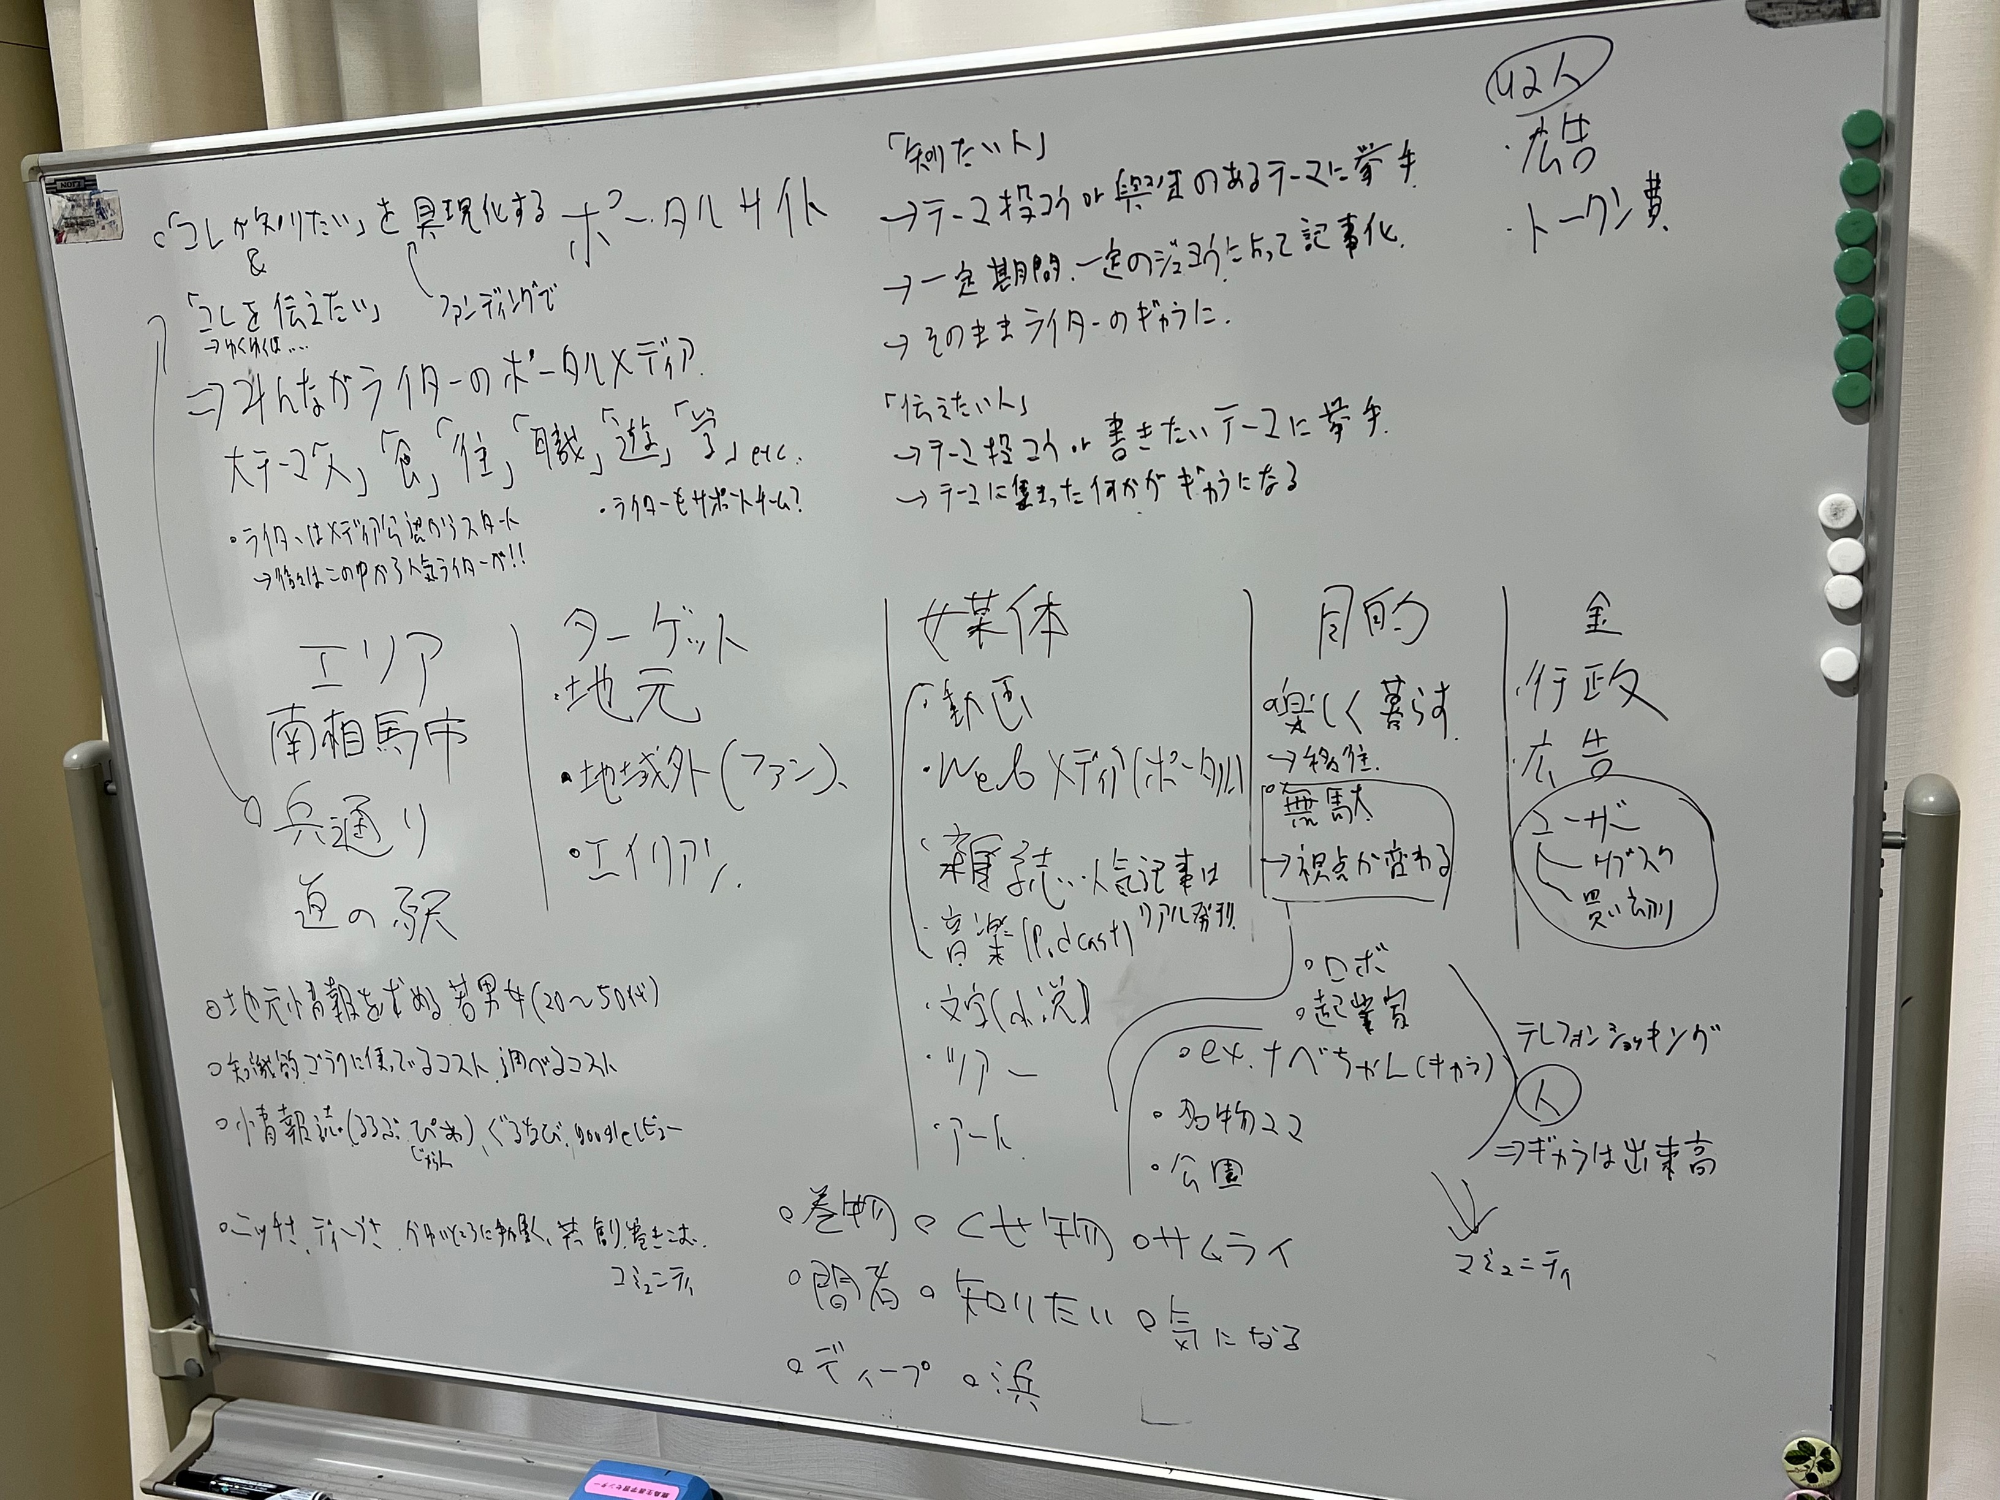 。「コレが知りたい」を具現化するポータルサイト
&
「コレを伝えたい」
ファンディングで
→ゆくゆくは…
⇒みんながライターのポータルメディア
大テーマ「人」「食」「住」「職」「遊」「学」etc.
・ライターはメディア公認からスタート
→後々はこの中から人気ライターが!!
・ライターもサポートチーム?
「知りたい人」
→テーマ投コウ or 興味のあるテーマに挙手
→一定期間、一定のジュヨウによって記事化
→そのままライターのギャラに.
「伝えたい人」
→テーマ投コウ or 書きたいテーマに挙手.
→テーマに集まった何かがギャラになる
42人
・広告
・トークン費
エリア
南相馬市
浜通り
道の駅
ターゲット
・地元
・地域外(ファン)、
・エイリアン.
媒体
・動画
・Webメディア(ポータル)
・雑誌…人気記事は
リアル発刊
・音楽(Podcast)
・文字(小説)
・ツアー
・アート
目的
。楽しく暮らす.
→移住.
。無駄
→視点が変わる
金
・行政
・広告
ユーザー
サブスク
買い切り
。ロボ
。起業家
。ex.ナベちゃん(キャラ)
。名物ママ
。公園
テレフォンショッキング
人
⇒ギャラは出来高
コミュニティ
。地元情報を求める若男女(20〜50代)
。知識的ゴラクに使ってるコスト、調べるコスト
。情報誌(るるぶ、ぴあ)、ぐるなび、googleレビュー
じゃらん
。ニッチさ、ディープさ、かゆいところに手が届く、共創、巻きこむ.
コミュニティ
。巻物 。くせ物 。サムライ
。間者 。知りたい 。気になる
。ディープ 。浜